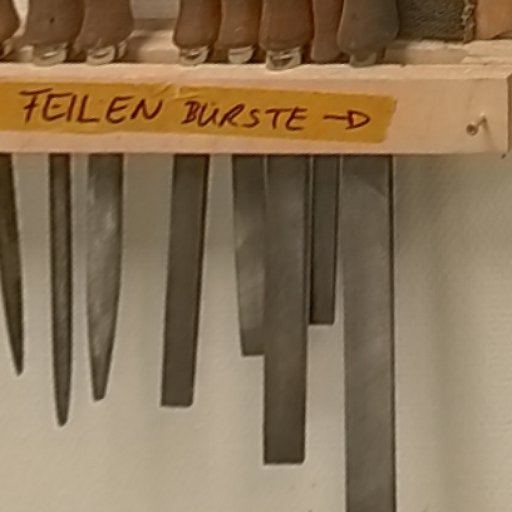 FEILEN BÜRSTE →